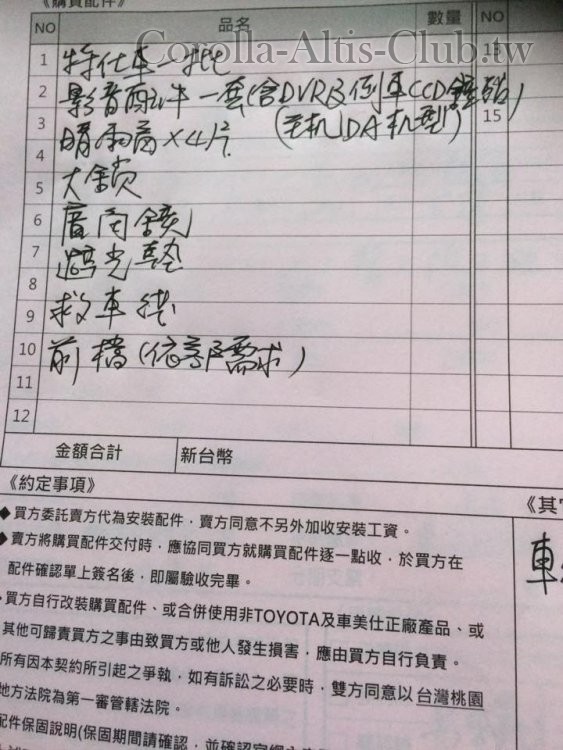 《購買配件》
NO 品名 數量 NO
Corolla-Altis-Club.tw
1 特仕車一批 13
2 影音配件一套(含DVR及倒車CCD
3 晴雨窗×4片 (主机DA机型) 15
4
5 大鎖
6 廣角鏡
7 遮光墊
8
9 救車線
10 前檔(依客戶需求)
11
12
金額合計 新台幣
《約定事項》 《其
◆買方委託賣方代為安裝配件,賣方同意不另外加收安裝工資。
◆賣方將購買配件交付時,應協同買方就購買配件逐一點收,於買方在 車
配件確認單上簽名後,即屬驗收完畢。
買方自行改裝購買配件、或合併使用非TOYOTA及車美仕正廠產品、或
其他可歸責買方之事由致買方或他人發生損害,應由買方自行負責。
所有因本契約所引起之爭執,如有訴訟之必要時,雙方同意以台灣桃園
地方法院為第一審管轄法院。
配件保固說明(保固期間請確認,並確認